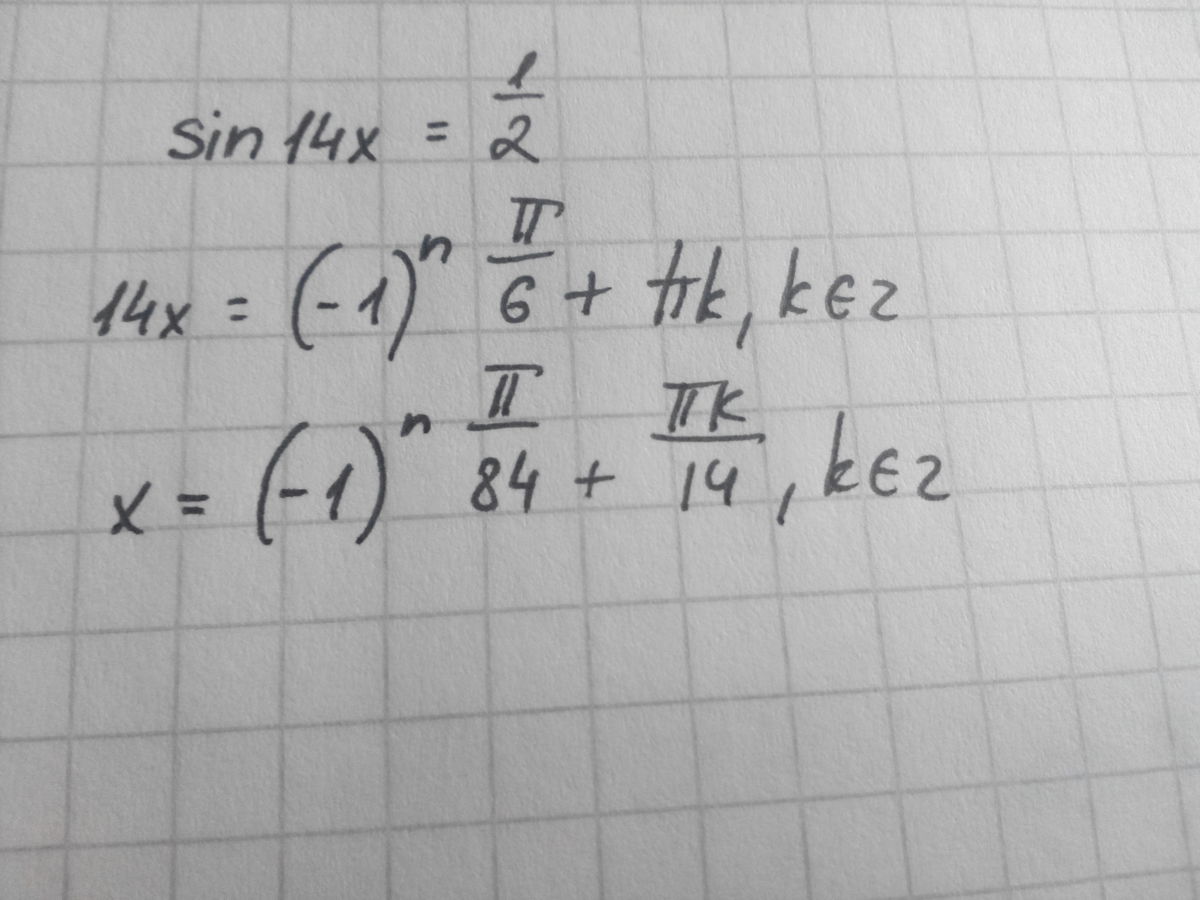 sin 14x = 1/2
14x = (-1)^n π/6 + πk, k∈z
x = (-1)^n π/84 + πk/14, k∈z